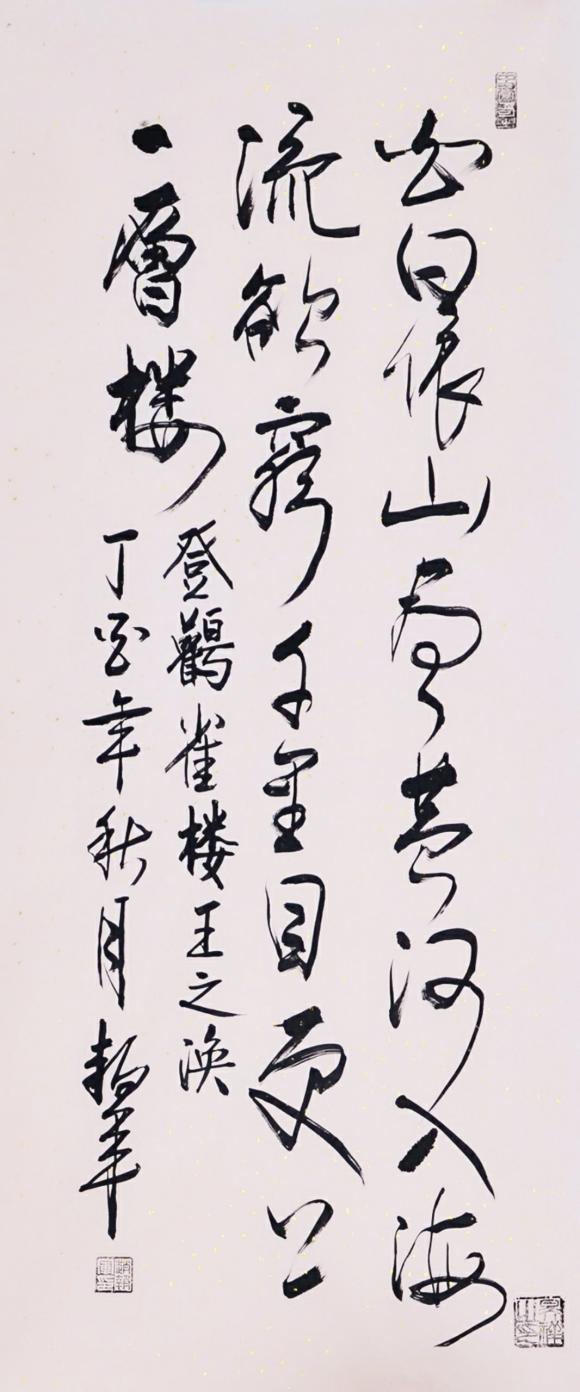 白日依山尽黄河入海
流欲窮千里目更上
一層楼
登鸛雀楼王之渙
丁酉年秋月